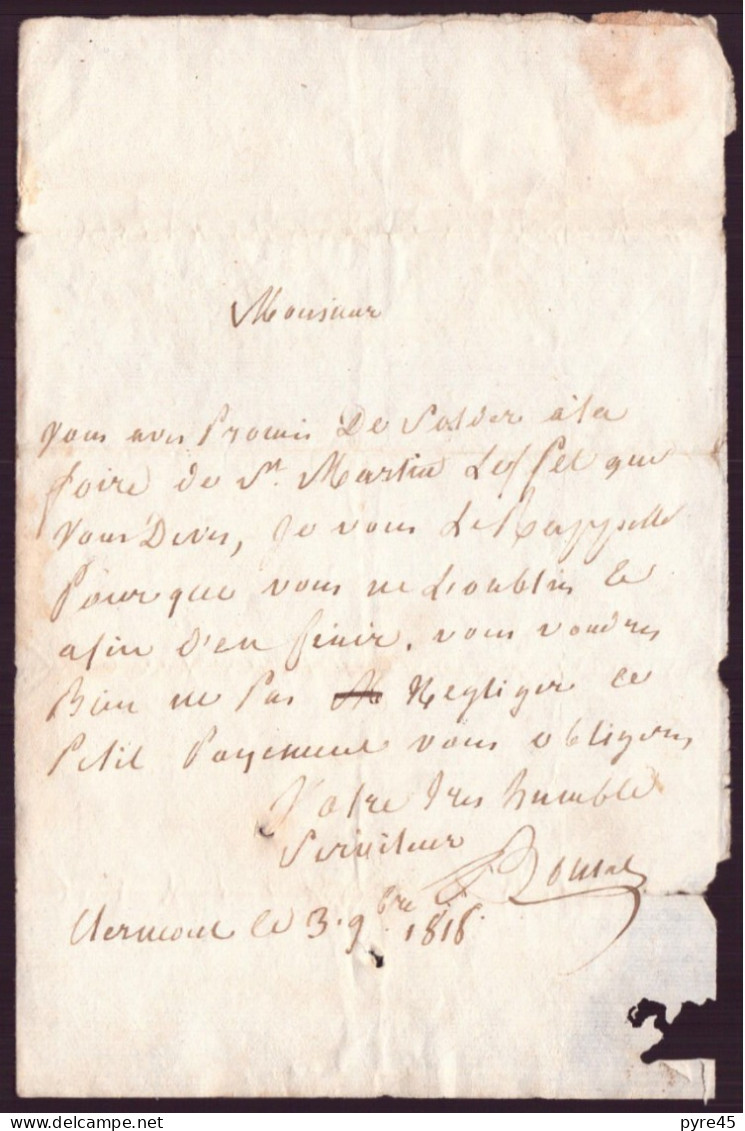 Monsieur
vous aves Promis De Solder à la
foire de St. Martin Leffet que
vous Deves, je vous Le Rappelle
Pour que vous ne L'oublies &
afin D'en finir. vous voudres
Bien ne Pas Negliger ce
Petit Payement vous obligeres
Votre tres humble
Serviteur
Clermont le 3. 9bre 1816.
pyre45